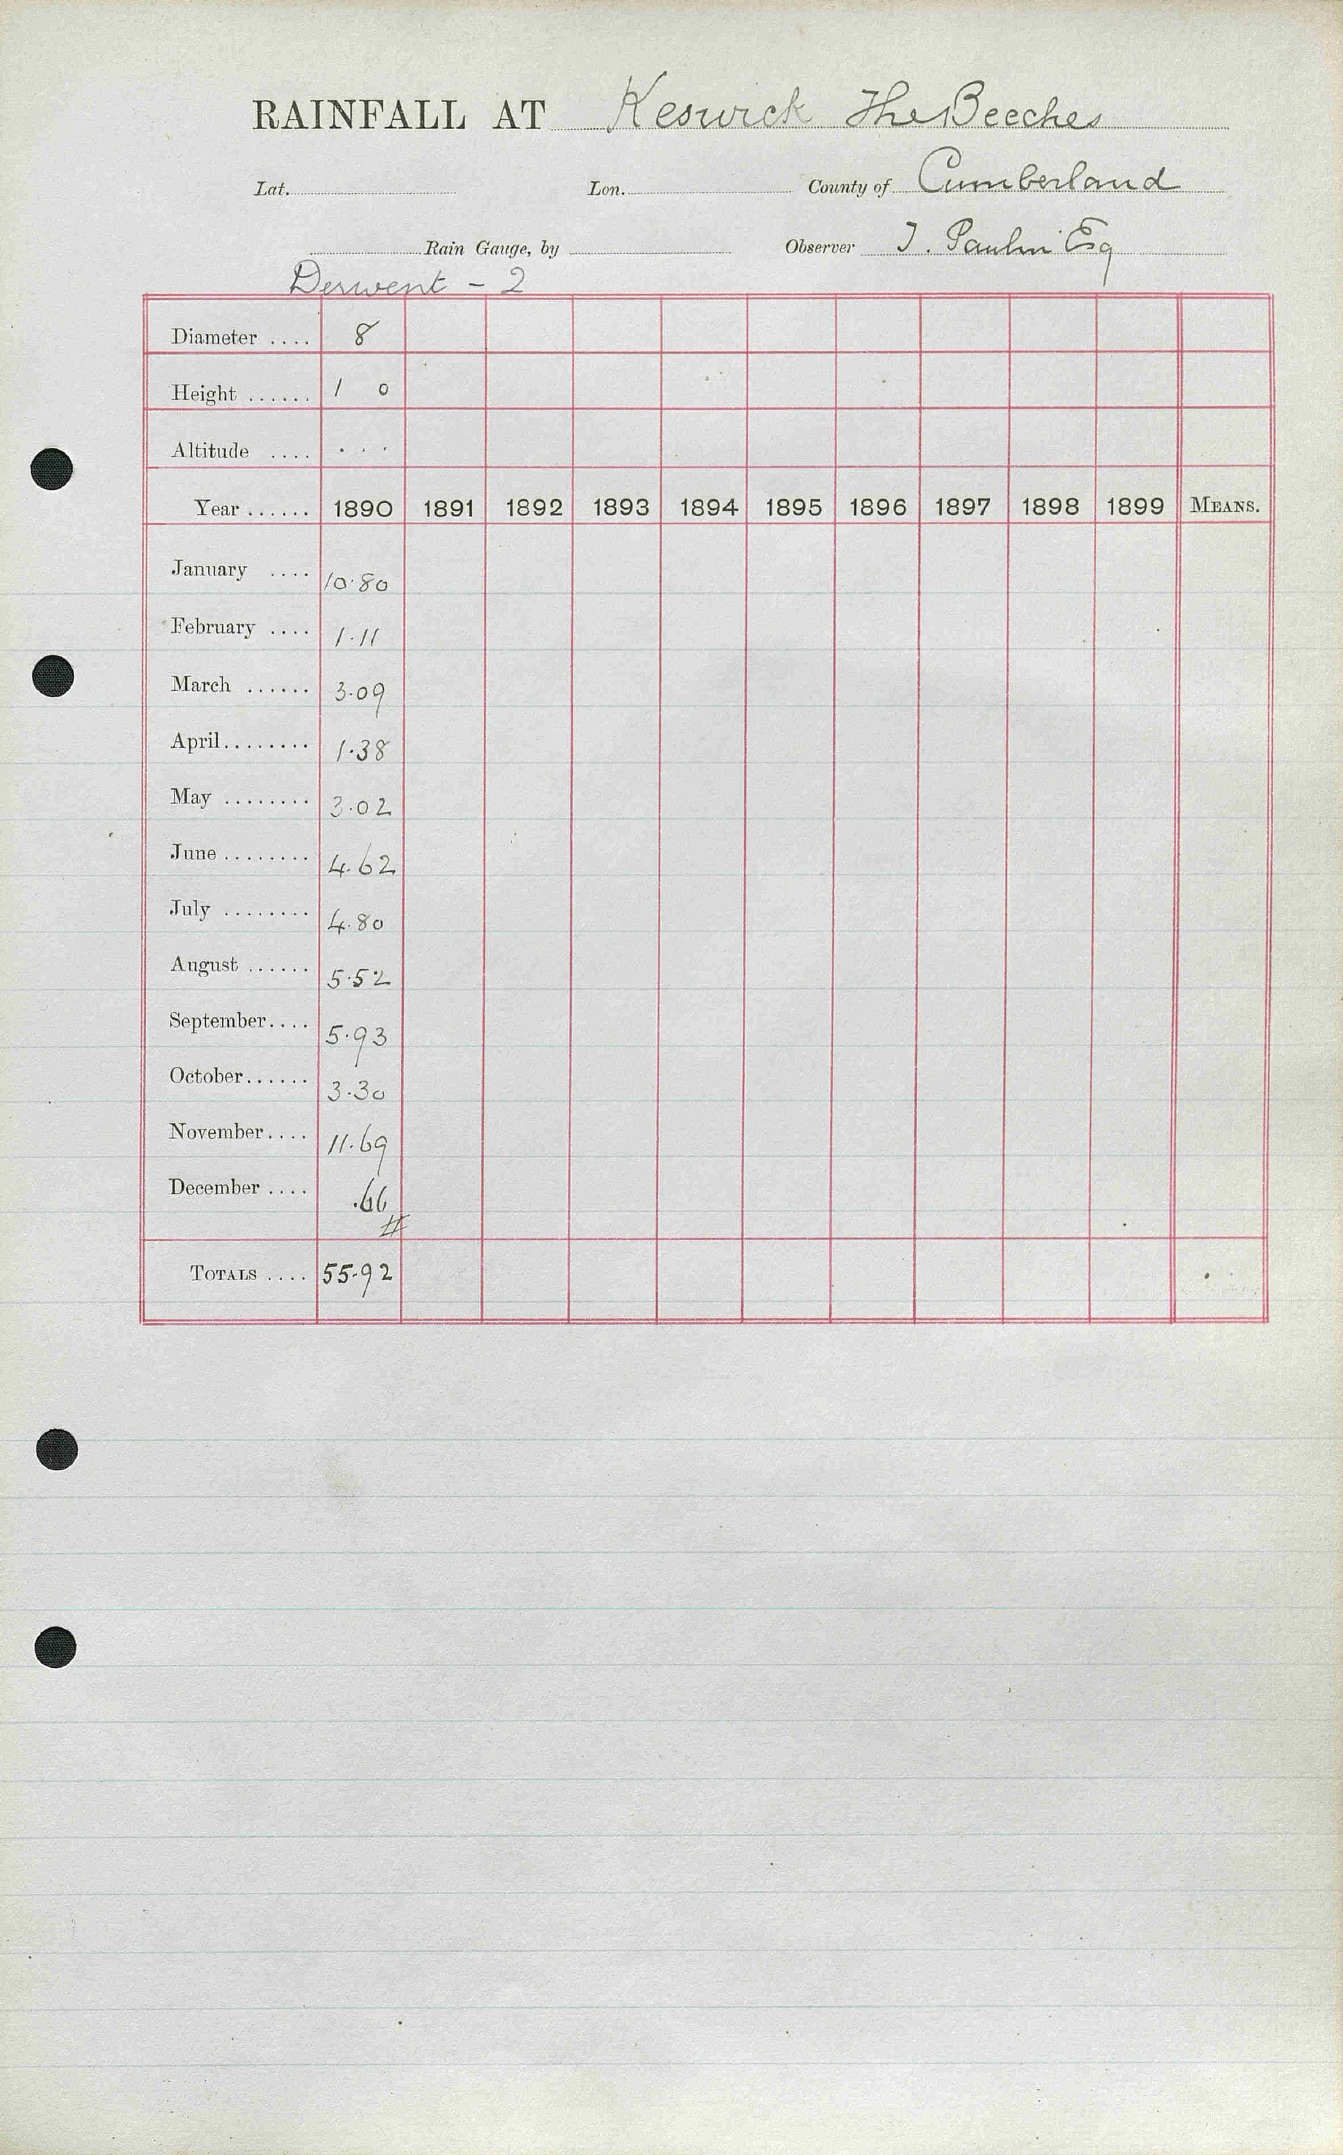 RAINFALL AT Keswick The Beeches
Lat. Lon. County of Cumberland
Rain Gauge, by Observer J. Paulin Esq
Derwent - 2
Diameter .... 8
Height ...... 1 0
Altitude .... . . .
Year ...... 1890 1891 1892 1893 1894 1895 1896 1897 1898 1899 MEANS.
January .... 10.80
February .... 1.11
March ...... 3.09
April ........ 1.38
May ........ 3.02
June ........ 4.62
July ........ 4.80
August ...... 5.52
September .... 5.93
October ...... 3.30
November .... 11.69
December .... .66
#
TOTALS .... 55.92